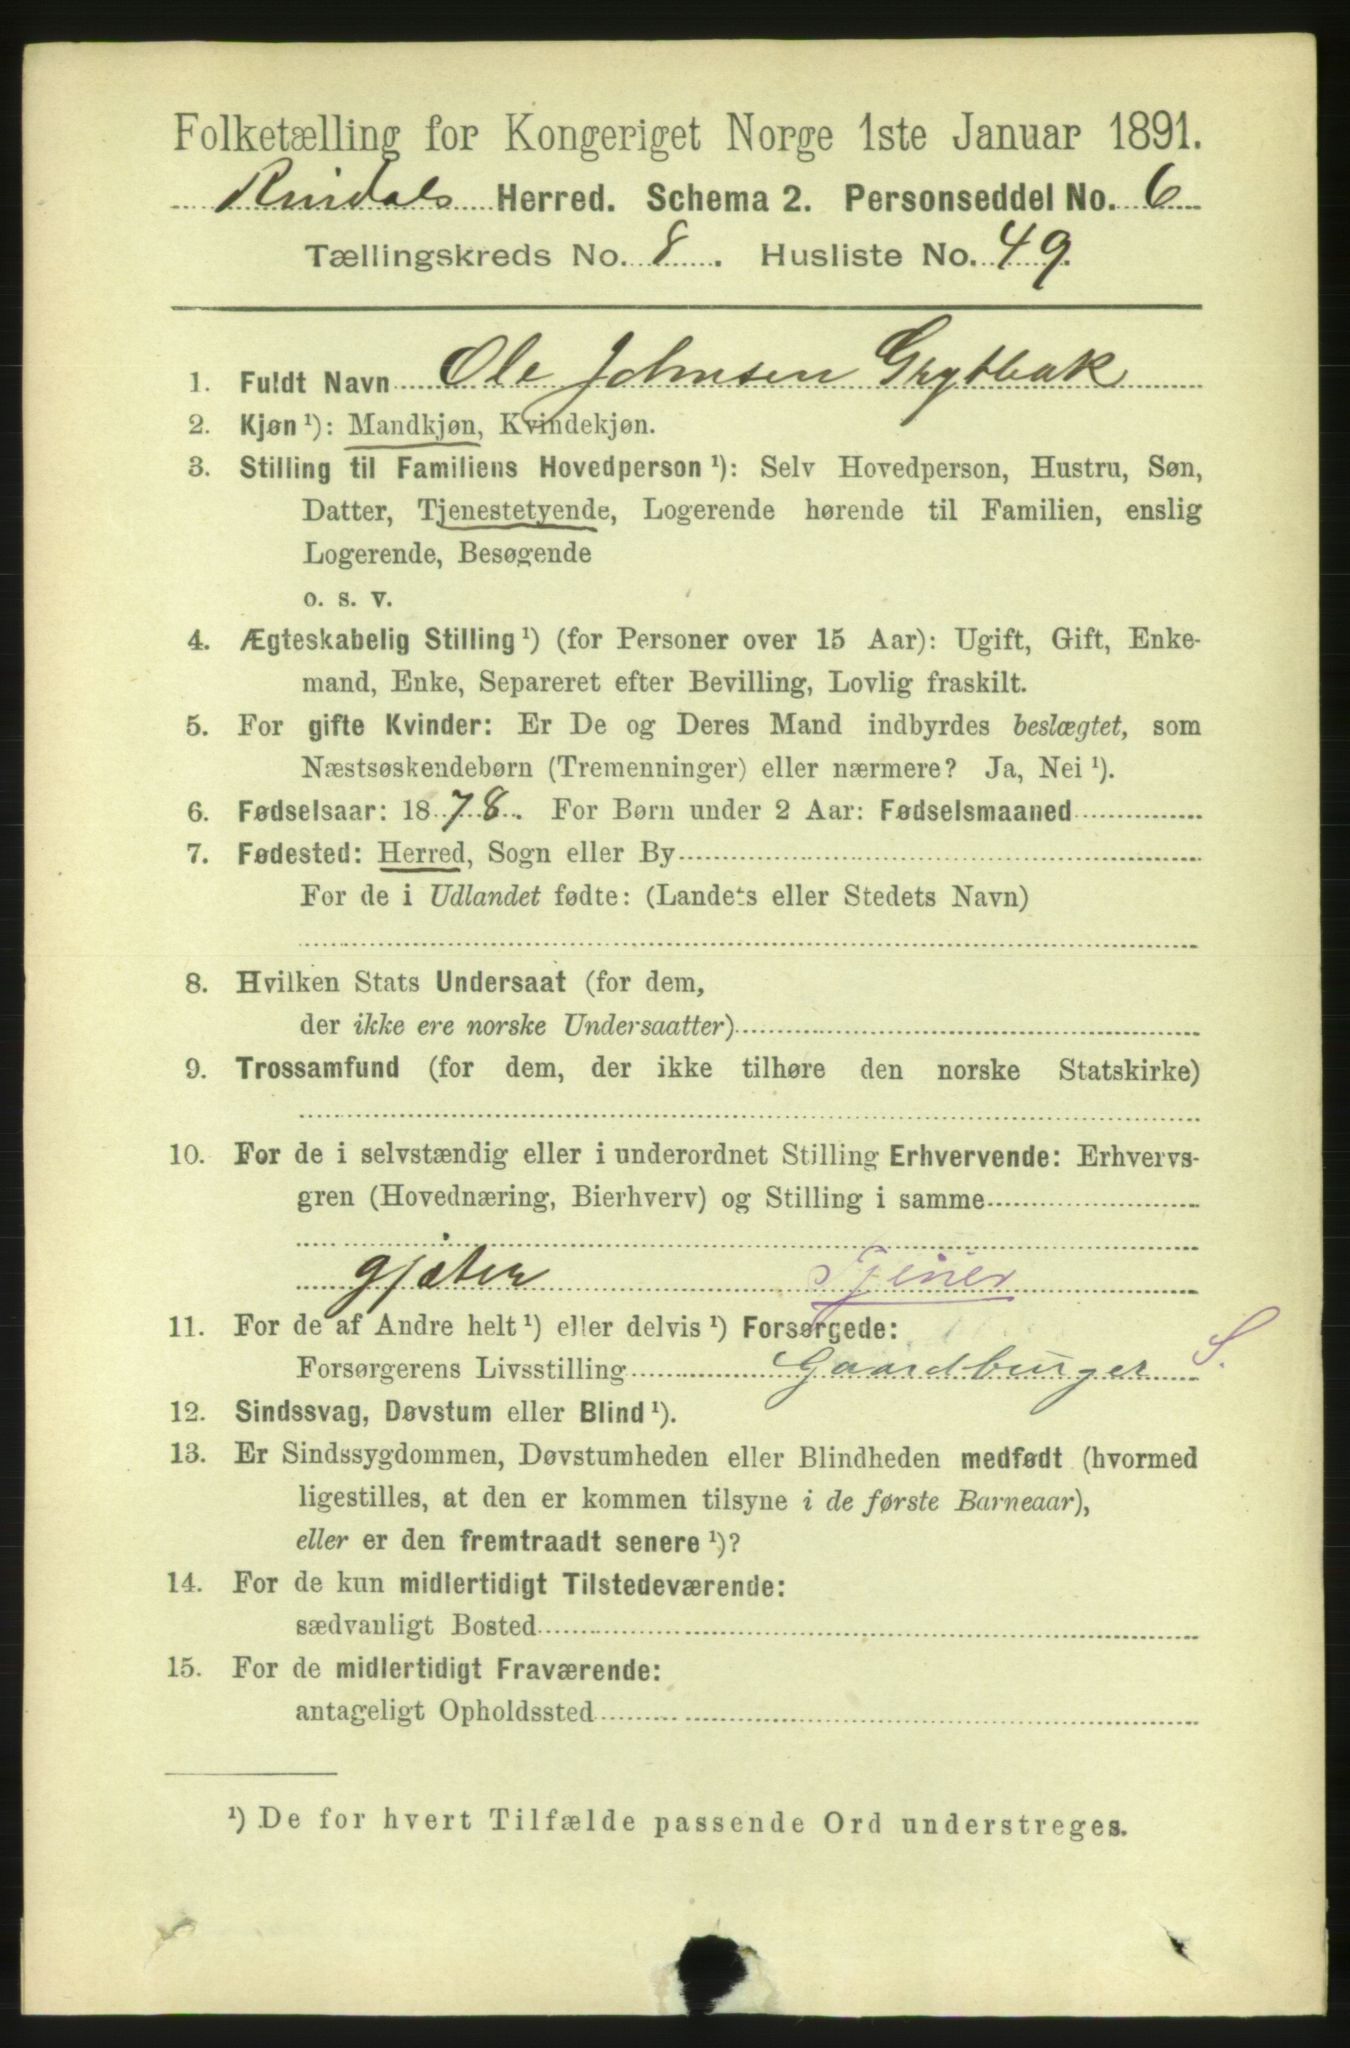 Folketælling for Kongeriget Norge 1ste Januar 1891.
Rindals Herred. Schema 2. Personseddel No. 6
Tællingskreds No. 8. Husliste No. 49.
1. Fuldt Navn Ole Johnsen Grytbak
2. Kjøn ¹): Mandkjøn, Kvindekjøn.
3. Stilling til Familiens Hovedperson ¹): Selv Hovedperson, Hustru, Søn,
Datter, Tjenestetyende, Logerende hørende til Familien, enslig
Logerende, Besøgende
o. s. v.
4. Ægteskabelig Stilling ¹) (for Personer over 15 Aar): Ugift, Gift, Enke-
mand, Enke, Separeret efter Bevilling, Lovlig fraskilt.
5. For gifte Kvinder: Er De og Deres Mand indbyrdes beslægtet, som
Næstsøskendebørn (Tremenninger) eller nærmere? Ja, Nei ¹).
6. Fødselsaar: 1878. For Børn under 2 Aar: Fødselsmaaned
7. Fødested: Herred, Sogn eller By
For de i Udlandet fødte: (Landets eller Stedets Navn)
8. Hvilken Stats Undersaat (for dem,
der ikke ere norske Undersaatter)
9. Trossamfund (for dem, der ikke tilhøre den norske Statskirke)
10. For de i selvstændig eller i underordnet Stilling Erhvervende: Erhvervs-
gren (Hovednæring, Bierhverv) og Stilling i samme
gjæter Tjener
11. For de af Andre helt ¹) eller delvis ¹) Forsørgede:
Forsørgerens Livsstilling Gaardbruger S.
12. Sindssvag, Døvstum eller Blind ¹).
13. Er Sindssygdommen, Døvstumheden eller Blindheden medfødt (hvormed
ligestilles, at den er kommen tilsyne i de første Barneaar),
eller er den fremtraadt senere ¹)?
14. For de kun midlertidigt Tilstedeværende:
sædvanligt Bosted
15. For de midlertidigt Fraværende:
antageligt Opholdssted
¹) De for hvert Tilfælde passende Ord understreges.